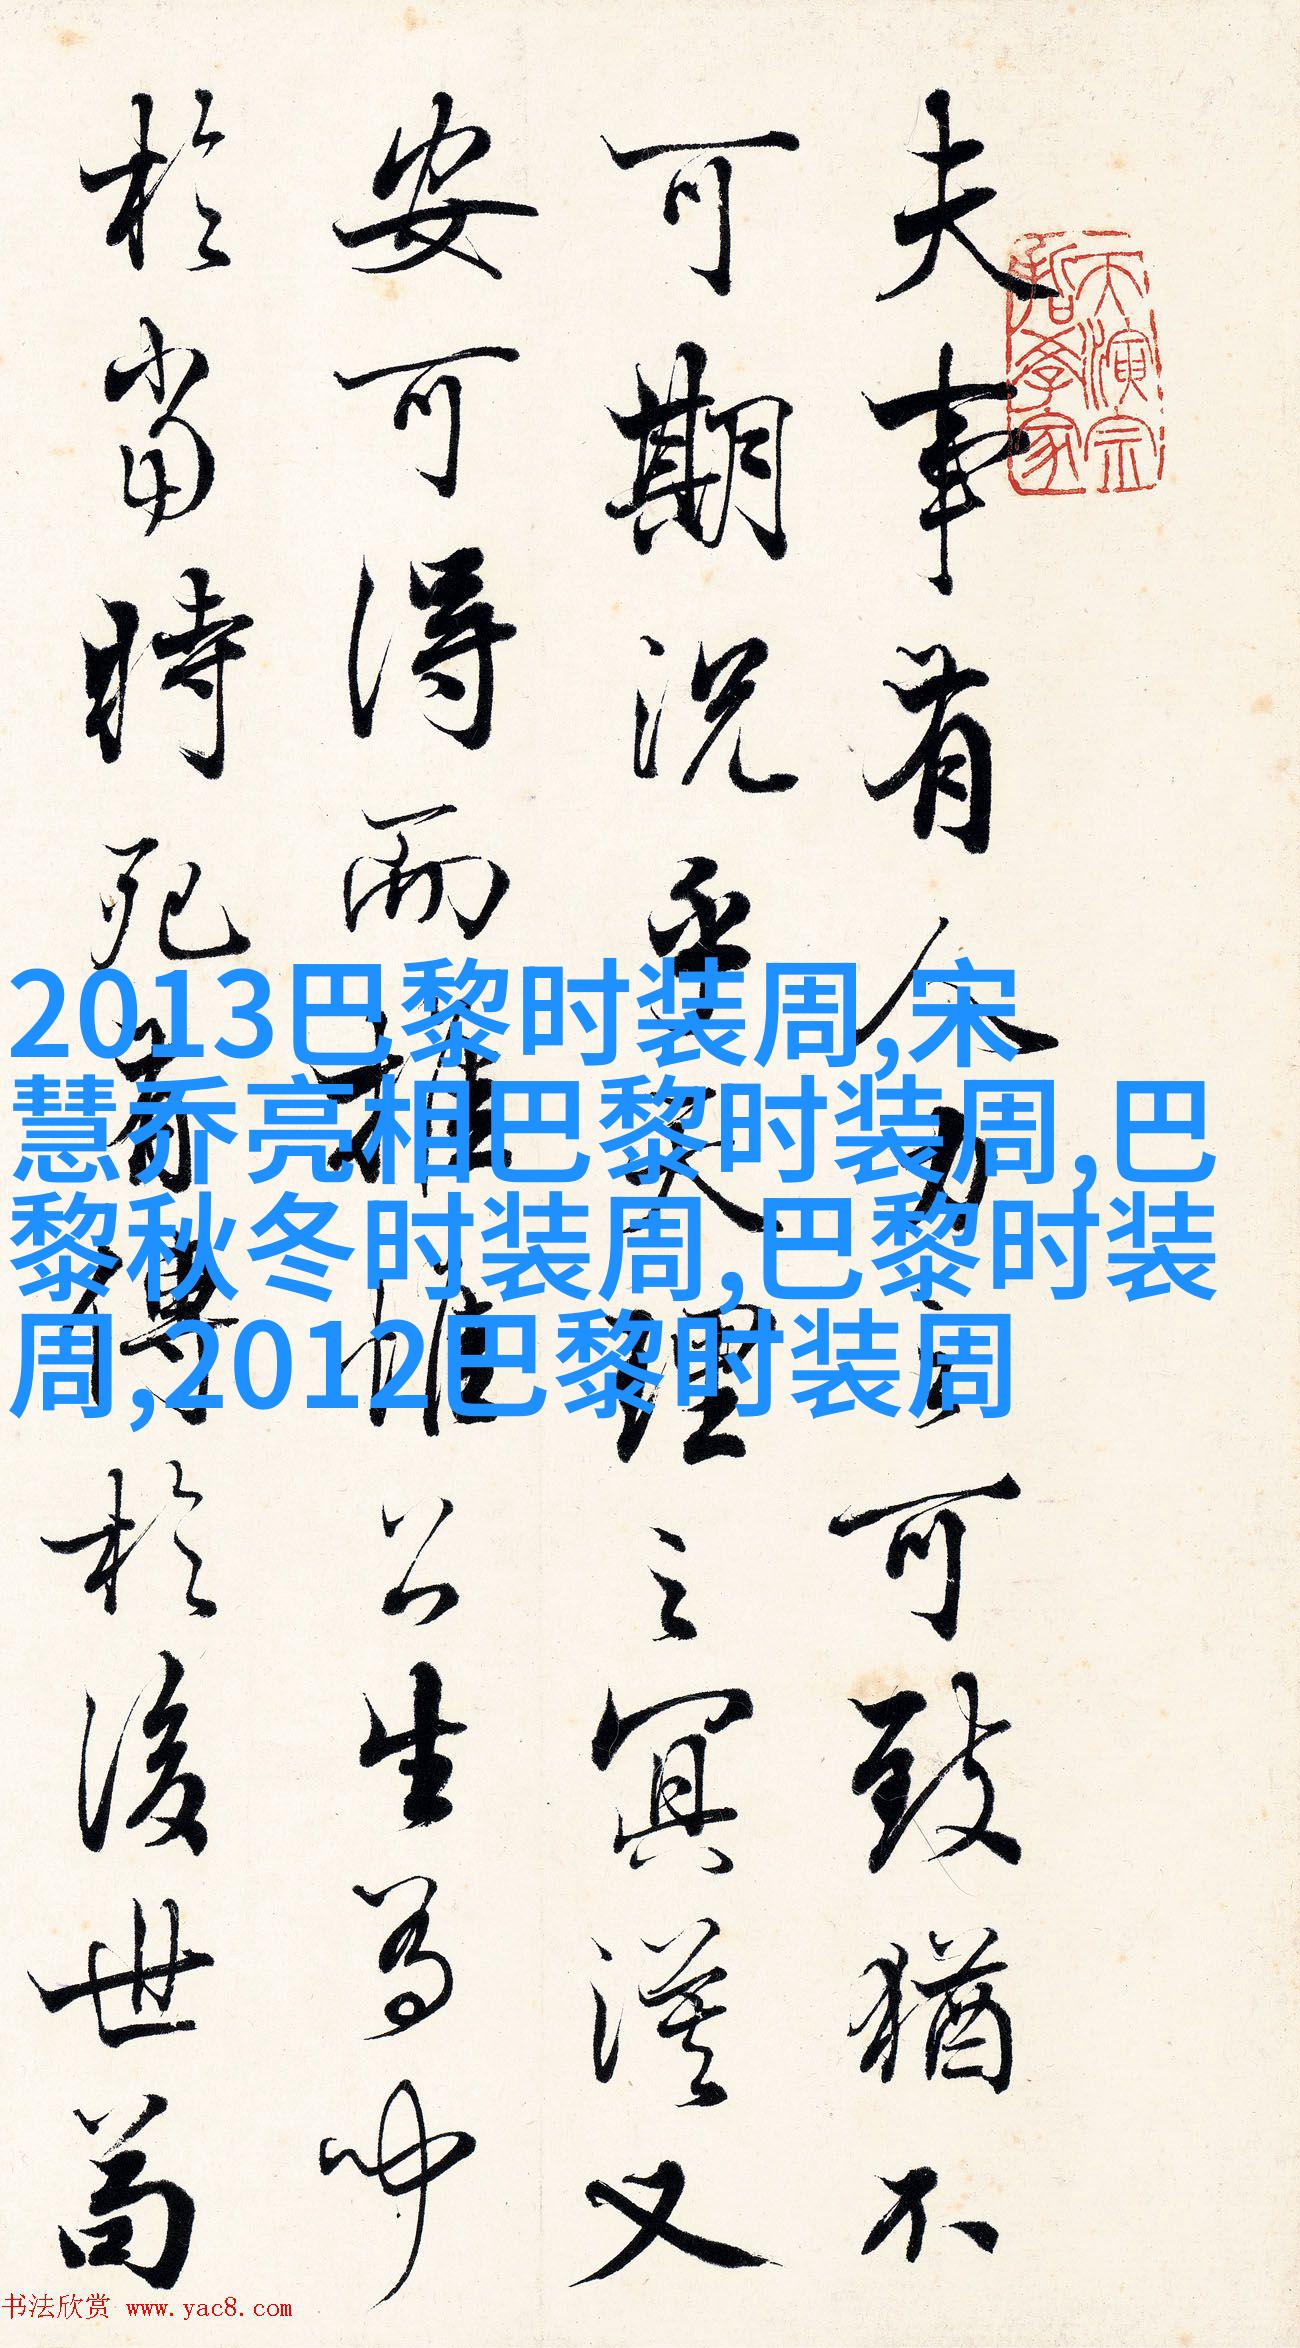 夫事有人力之可致猶不
可期況乎天理之冥漠又
安可得而推惟公生有聞
於當時死有傳於後世苟
天演宗
哲學家
2013巴黎时装周,宋
慧乔亮相巴黎时装周,巴
黎秋冬时装周,巴黎时装
周,2012巴黎时装周
书法欣赏 www.yac8.com